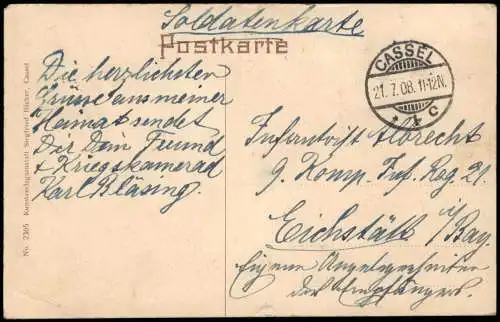 Soldatenkarte
Postkarte
Die herzlichsten
Grüsse aus meiner
Heimat sendet
Dir Dein Freund
+ Kriegskamerad
Karl Bläsing.
No. 2305 Kunstverlagsanstalt Siegfried Hücker, Cassel
CASSEL
21.7.08.11-12N.
* 1 c
Infanterist Albrecht
9. Komp. Inf. Reg. 21.
Eichstätt i/Bay.
Eigene Angelegenheiten
des Empfängers.